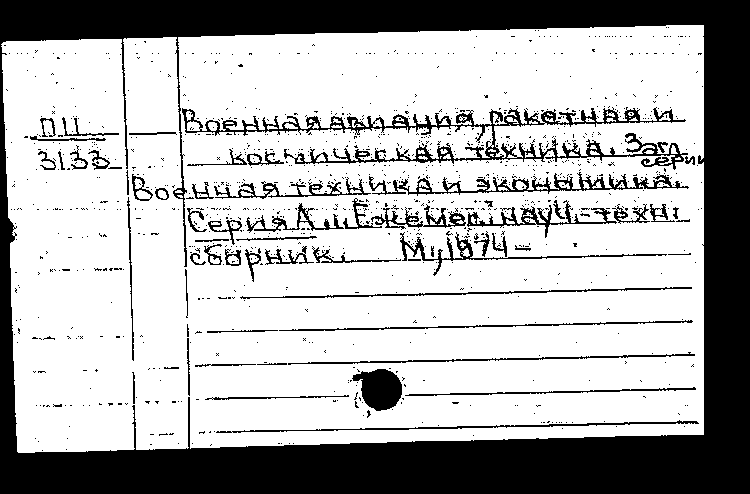 П11
3133
Военная авиация, ракетная и
космическая техника. Загл.
серии
Военная техника и экономика.
Серия А. Ежемес. науч.-техн.
сборник. М., 1974 –